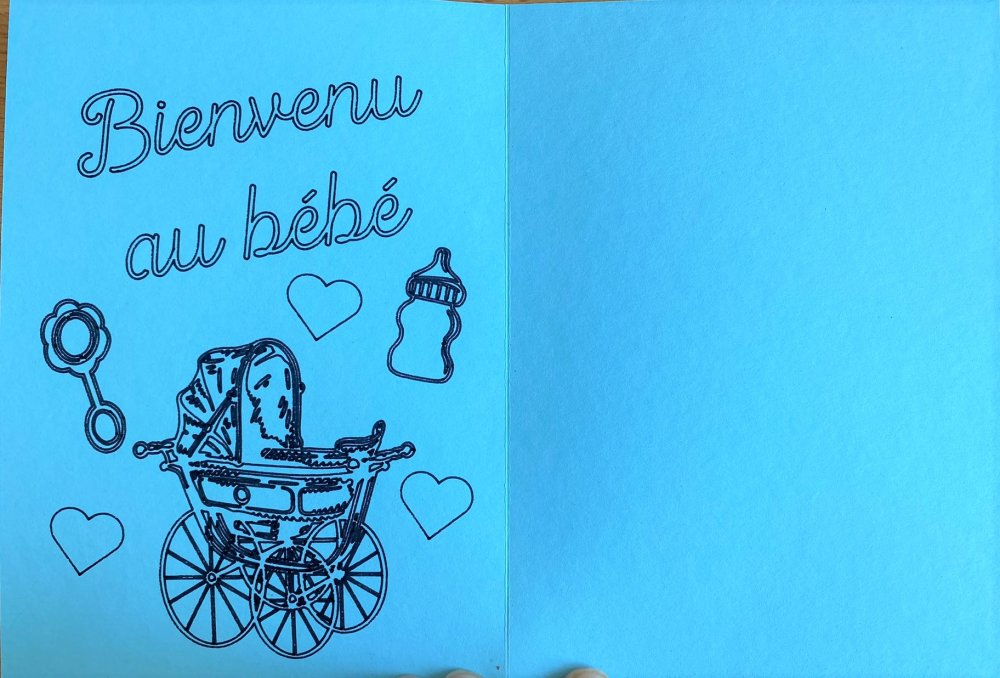 Bienvenu
au bébé